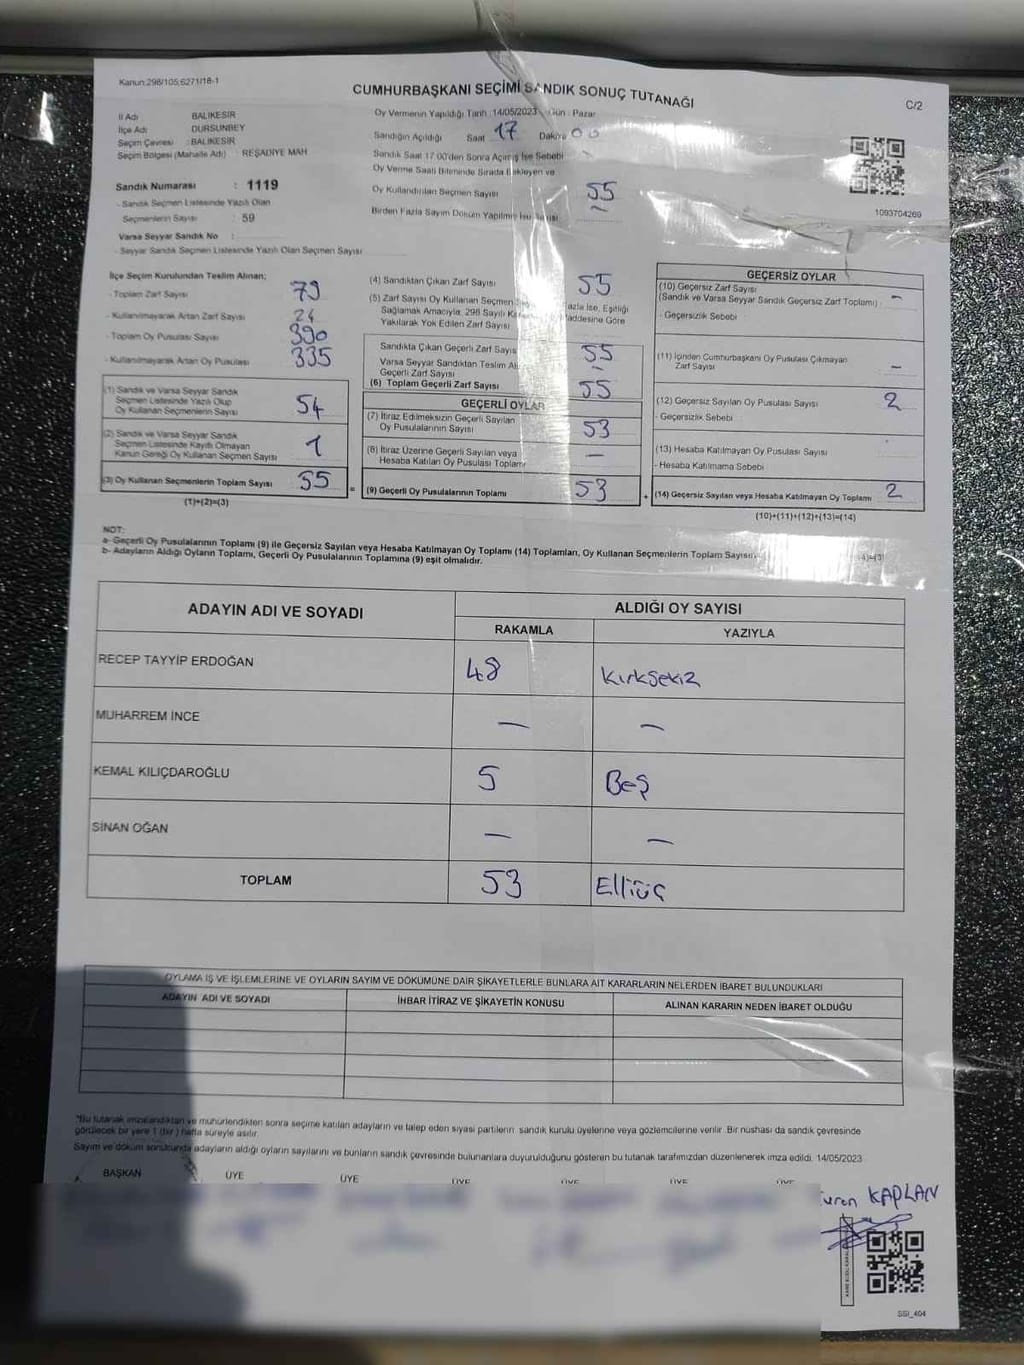 Kanun:298/105;6271/18-1
CUMHURBAŞKANI SEÇİMİ SANDIK SONUÇ TUTANAĞI
C/2
İl Adı BALIKESİR
İlçe Adı DURSUNBEY
Seçim Çevresi : BALIKESİR
Seçim Bölgesi (Mahalle Adı) : REŞADİYE MAH
Sandık Numarası : 1119
- Sandık Seçmen Listesinde Yazılı Olan
Seçmenlerin Sayısı : 59
Varsa Seyyar Sandık No :
- Seyyar Sandık Seçmen Listesinde Yazılı Olan Seçmen Sayısı
Oy Vermenin Yapıldığı Tarih :14/05/2023 Gün : Pazar
Sandığın Açıldığı Saat 17 Dakika 00
Sandık Saat 17:00'den Sonra Açılmış İse Sebebi
Oy Verme Saati Bitiminde Sırada Bekleyen ve
Oy Kullandırılan Seçmen Sayısı 55
Birden Fazla Sayım Döküm Yapılmış İse Sayısı –
1093704269
İlçe Seçim Kurulundan Teslim Alınan;
- Toplam Zarf Sayısı 79
- Kullanılmayarak Artan Zarf Sayısı 24
- Toplam Oy Pusulası Sayısı 390
- Kullanılmayarak Artan Oy Pusulası 335
(1) Sandık ve Varsa Seyyar Sandık
Seçmen Listesinde Yazılı Olup
Oy Kullanan Seçmenlerin Sayısı 54
(2) Sandık ve Varsa Seyyar Sandık
Seçmen Listesinde Kayıtlı Olmayan
Kanun Gereği Oy Kullanan Seçmen Sayısı 1
(3) Oy Kullanan Seçmenlerin Toplam Sayısı 55
(1)+(2)=(3)
=
(4) Sandıktan Çıkan Zarf Sayısı 55
(5) Zarf Sayısı Oy Kullanan Seçmen Fazla İse, Eşitliği
Sağlamak Amacıyla, 298 Sayılı Maddesine Göre
Yakılarak Yok Edilen Zarf Sayısı
Sandıkta Çıkan Geçerli Zarf Sayısı 55
Varsa Seyyar Sandıktan Teslim
Geçerli Zarf Sayısı –
(6) Toplam Geçerli Zarf Sayısı 55
GEÇERLİ OYLAR
(7) İtiraz Edilmeksizin Geçerli Sayılan
Oy Pusulalarının Sayısı 53
(8) İtiraz Üzerine Geçerli Sayılan veya
Hesaba Katılan Oy Pusulası Toplamı –
(9) Geçerli Oy Pusulalarının Toplamı 53
+
GEÇERSİZ OYLAR
(10) Geçersiz Zarf Sayısı
(Sandık ve Varsa Seyyar Sandık Geçersiz Zarf Toplamı) –
- Geçersizlik Sebebi
(11) İçinden Cumhurbaşkanı Oy Pusulası Çıkmayan
Zarf Sayısı –
(12) Geçersiz Sayılan Oy Pusulası Sayısı 2
- Geçersizlik Sebebi
(13) Hesaba Katılmayan Oy Pusulası Sayısı
- Hesaba Katılmama Sebebi
(14) Geçersiz Sayılan veya Hesaba Katılmayan Oy Toplamı 2
(10)+(11)+(12)+(13)=(14)
NOT:
a- Geçerli Oy Pusulalarının Toplamı (9) ile Geçersiz Sayılan veya Hesaba Katılmayan Oy Toplamı (14) Toplamları, Oy Kullanan Seçmenlerin Toplam Sayısı
b- Adayların Aldığı Oyların Toplamı, Geçerli Oy Pusulalarının Toplamına (9) eşit olmalıdır.
ADAYIN ADI VE SOYADI
ALDIĞI OY SAYISI
RAKAMLA YAZIYLA
RECEP TAYYİP ERDOĞAN 48 Kırksekiz
MUHARREM İNCE – –
KEMAL KILIÇDAROĞLU 5 Beş
SİNAN OĞAN – –
TOPLAM 53 Elliüç
OYLAMA İŞ VE İŞLEMLERİNE VE OYLARIN SAYIM VE DÖKÜMÜNE DAİR ŞİKAYETLERLE BUNLARA AİT KARARLARIN NELERDEN İBARET BULUNDUKLARI
ADAYIN ADI VE SOYADI İHBAR İTİRAZ VE ŞİKAYETİN KONUSU ALINAN KARARIN NEDEN İBARET OLDUĞU
*Bu tutanak imzalandıktan ve mühürlendikten sonra seçime katılan adayların ve talep eden siyasi partilerin sandık kurulu üyelerine veya gözlemcilerine verilir. Bir nüshası da sandık çevresinde
görülecek bir yere 1 (bir ) hafta süreyle asılır.
Sayım ve döküm sonucunda adayların aldığı oyların sayılarını ve bunların sandık çevresinde bulunanlara duyurulduğunu gösteren bu tutanak tarafımızdan düzenlenerek imza edildi. 14/05/2023
BAŞKAN ÜYE ÜYE ÜYE ÜYE ÜYE ÜYE
KAPLAN
SSI_404